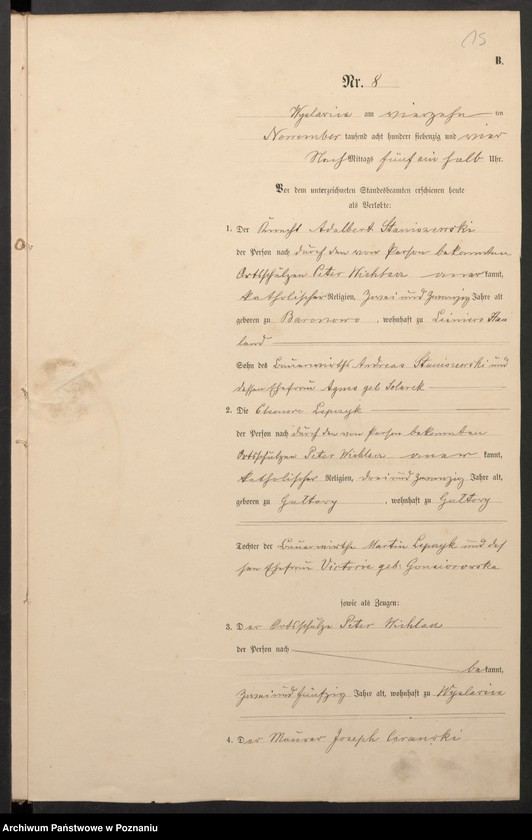 15
B.
Nr. 8
am vierzehn ten
November tausend acht hundert siebenzig und vier
Nach Mittags fünf ein halb Uhr.
Vor dem unterzeichneten Standesbeamten erschienen heute
als Verlobte:
1. Der Knecht Adalbert Staniszewski
der Person nach durch den von Person bekannten
Ortsschulzen Peter Wichlaa aner kannt,
katholischer Religion, Zwei und Zwanzig Jahre alt
geboren zu Baranowo, wohnhaft zu Hau
land
Sohn des Bauerwirths Andreas Staniszewski und
dessen Ehefrau Agnes geb Solarek
2. Die Eleonore Lepczyk
der Person nach durch den von Person bekannten
Ortsschulzen Peter Wichlaa aner kannt,
katholischer Religion, drei und Zwanzig Jahre alt,
geboren zu Galtory, wohnhaft zu Galtory
Tochter der Bauerwirthe Martin Lepczyk und des
sen Ehefrau Victorie geb. Gonsiorowska
sowie als Zeugen:
3. Der Ortsschulze Peter Wichlaa
der Person nach
be kannt,
Zwei und fünfzig Jahre alt, wohnhaft zu
4. Der Maurer Joseph
Archiwum Państwowe w Poznaniu